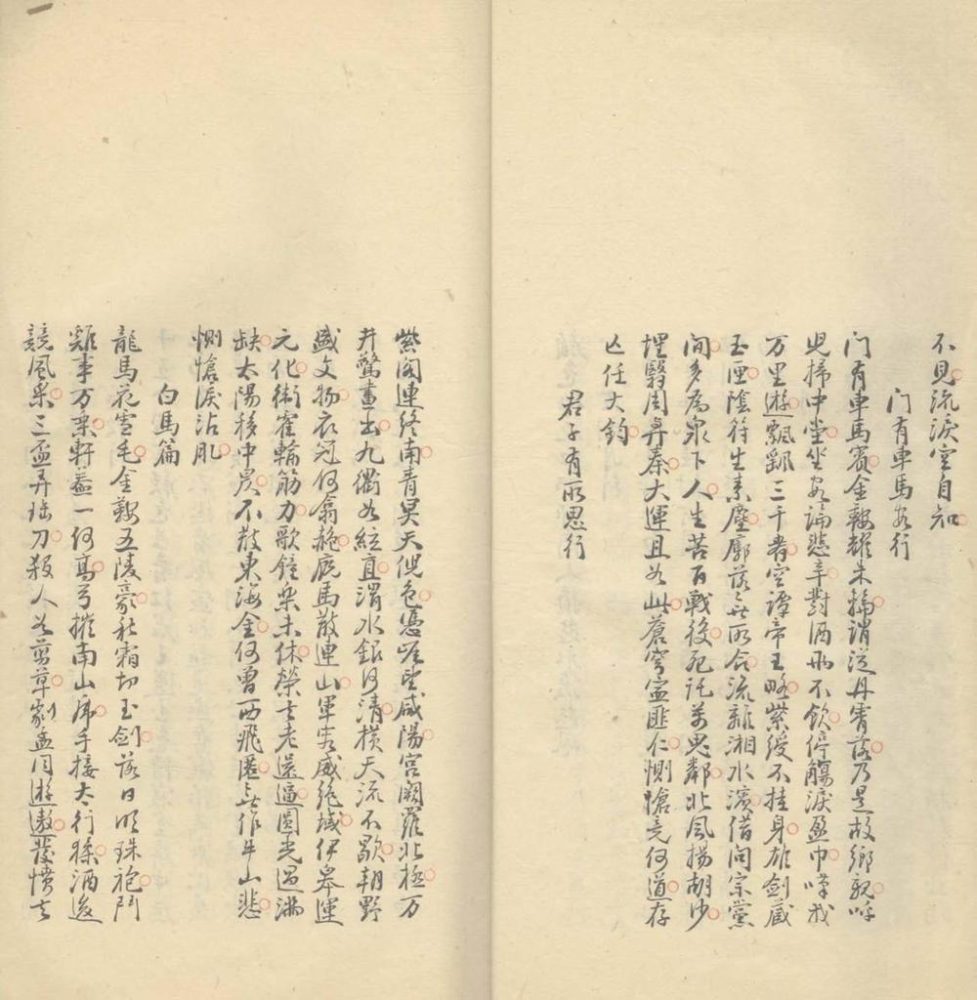 不見流淚空自知
门有車馬客行
门有車馬賓金鞍耀朱輪謂從丹霄落乃是故鄉親呼
児掃中堂坐客論悲辛對酒兩不飲停觴淚盈巾嘆我
万里遊飄飄三十春空譚帝王略紫綬不挂身雄劍藏
玉匣陰符生素塵廓落無所合流離湘水濱借问宗黨
间多為泉下人生苦百戰役死託万鬼鄰北風揚胡沙
埋翳周與秦大運且如此蒼穹寧匪仁惻愴竟何道存
亡任大鈞
君子有所思行
紫阁連終南青冥天倪色憑崖望咸陽宮闕羅北極万
井驚畫出九衢如絃直渭水銀河清横天流不歇朝野
盛文物衣冠何翕赩厩馬散連山軍容威絶域伊皋運
元化衛霍輸筋力歌鐘樂未休榮去老還逼圓光過滿
缺太陽移中昃不散東海金何曾西飛匿無作牛山悲
惻愴淚沾肊
白馬篇
龍馬花雪毛金鞍五陵豪秋霜切玉劍落日明珠袍鬥
雞事万乗軒蓋一何高弓摧南山虎手接太行猱酒後
競風采三盃弄珤刀殺人如剪草劇孟同遊遨發憤去